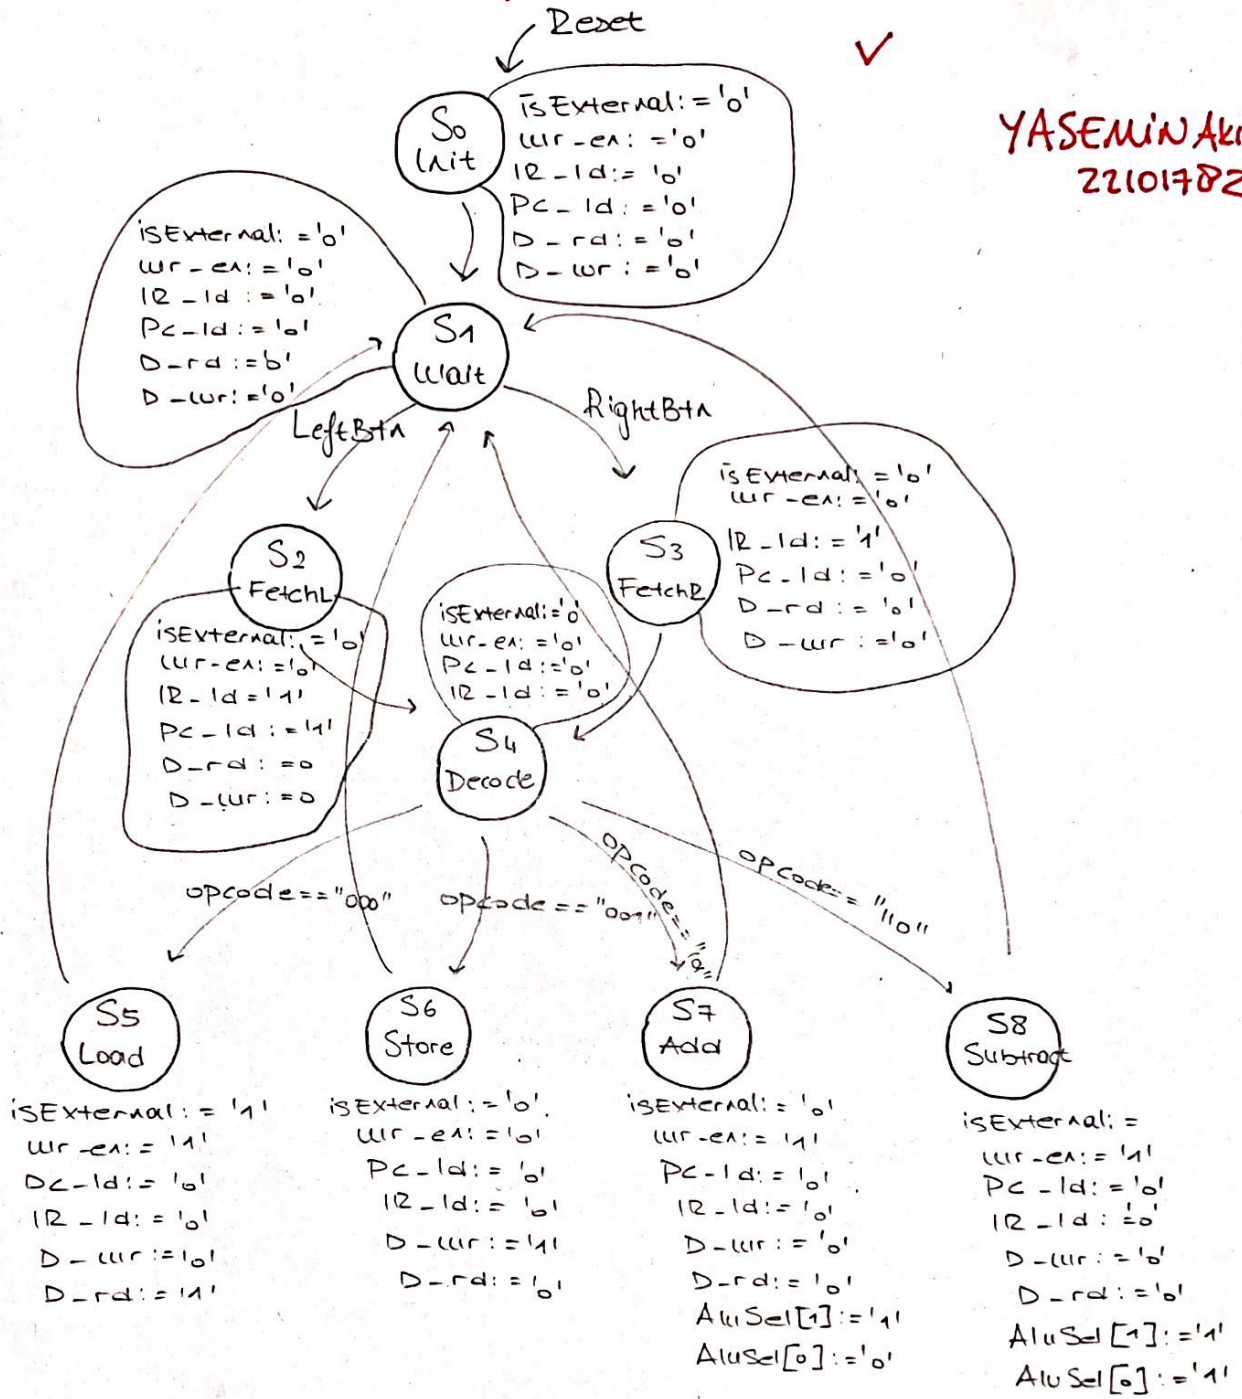 Reset
✓
YASEMİN Akı
22101782
S0
Init
isExternal:='0'
wr-en:='0'
IR-ld:='0'
Pc-ld:='0'
D-rd:='0'
D-wr:='0'
isExternal:='0'
wr-en:='0'
IR-ld:='0'
Pc-ld:='0'
D-rd:='0'
D-wr:='0'
S1
Wait
LeftBtn
RightBtn
S2
FetchL
isExternal:='0'
wr-en:='0'
IR-ld='1'
Pc-ld:='1'
D-rd:=0
D-wr:=0
isExternal:='0'
wr-en:='0'
Pc-ld:='0'
IR-ld:='0'
S3
FetchR
isExternal:='0'
wr-en:='0'
IR-ld:='1'
Pc-ld:='0'
D-rd:='0'
D-wr:='0'
S4
Decode
opcode=="000"
opcode=="001"
opcode==
opcode=="110"
S5
Load
isExternal:='1'
wr-en:='1'
Pc-ld:='0'
IR-ld:='0'
D-wr:='0'
D-rd:='1'
S6
Store
isExternal:='0'.
wr-en:='0'
Pc-ld:='0'
IR-ld:='0'
D-wr:='1'
D-rd:='0'
S7
Add
isExternal:='0'
wr-en:='1'
Pc-ld:='0'
IR-ld:='0'
D-wr:='0'
D-rd:='0'
AluSel[1]:='1'
AluSel[0]:='0'
S8
Subtract
isExternal:=
wr-en:='1'
Pc-ld:='0'
IR-ld:='0'
D-wr:='0'
D-rd:='0'
AluSel[1]:='1'
AluSel[0]:='1'